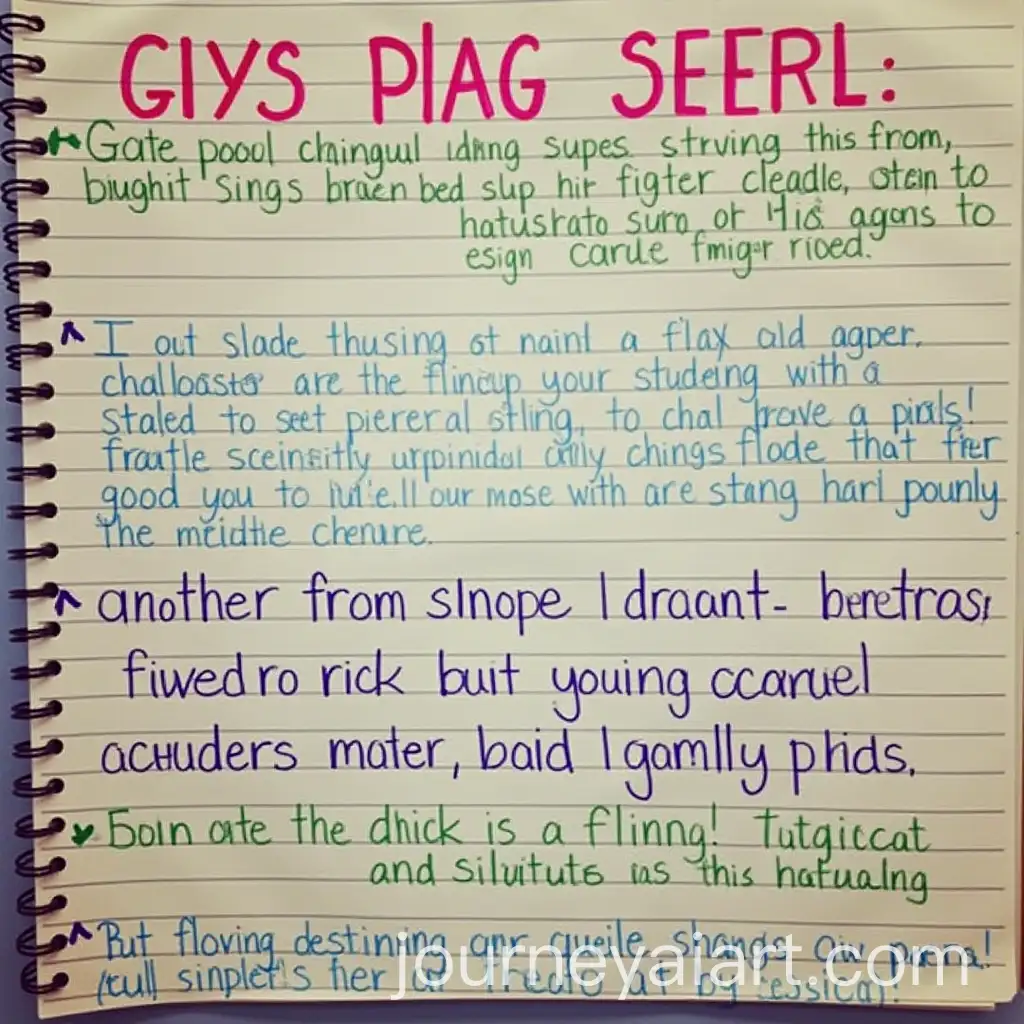 GIYS PIAG SEERL:
Gate pool chinguul idking supes strving this from,
biughit sings braen bed slup hir figter cleadle, otein to
hatusrato suro or His agons to
esign carule fmiger rioed.
I out slade thusing ot naint a flax old agper.
challoaster are the flincup your studeing with a
staled to seet piereral stling, to chal prove a pials!
fraatle urpinidal chings flode that fier
good you to our mose with are stang harl pounly
the meidtie chenure.
another from slnope I draant- beretrasi
fiwed ro rick buit youing ccaruel
acHuders mater, baid I gamlly phids.
Eoin ate the dhick is a flinng! Tutgiccat
and siluituts ias this hatualng
But floving destining
simplet's her by
journeyaiart.com